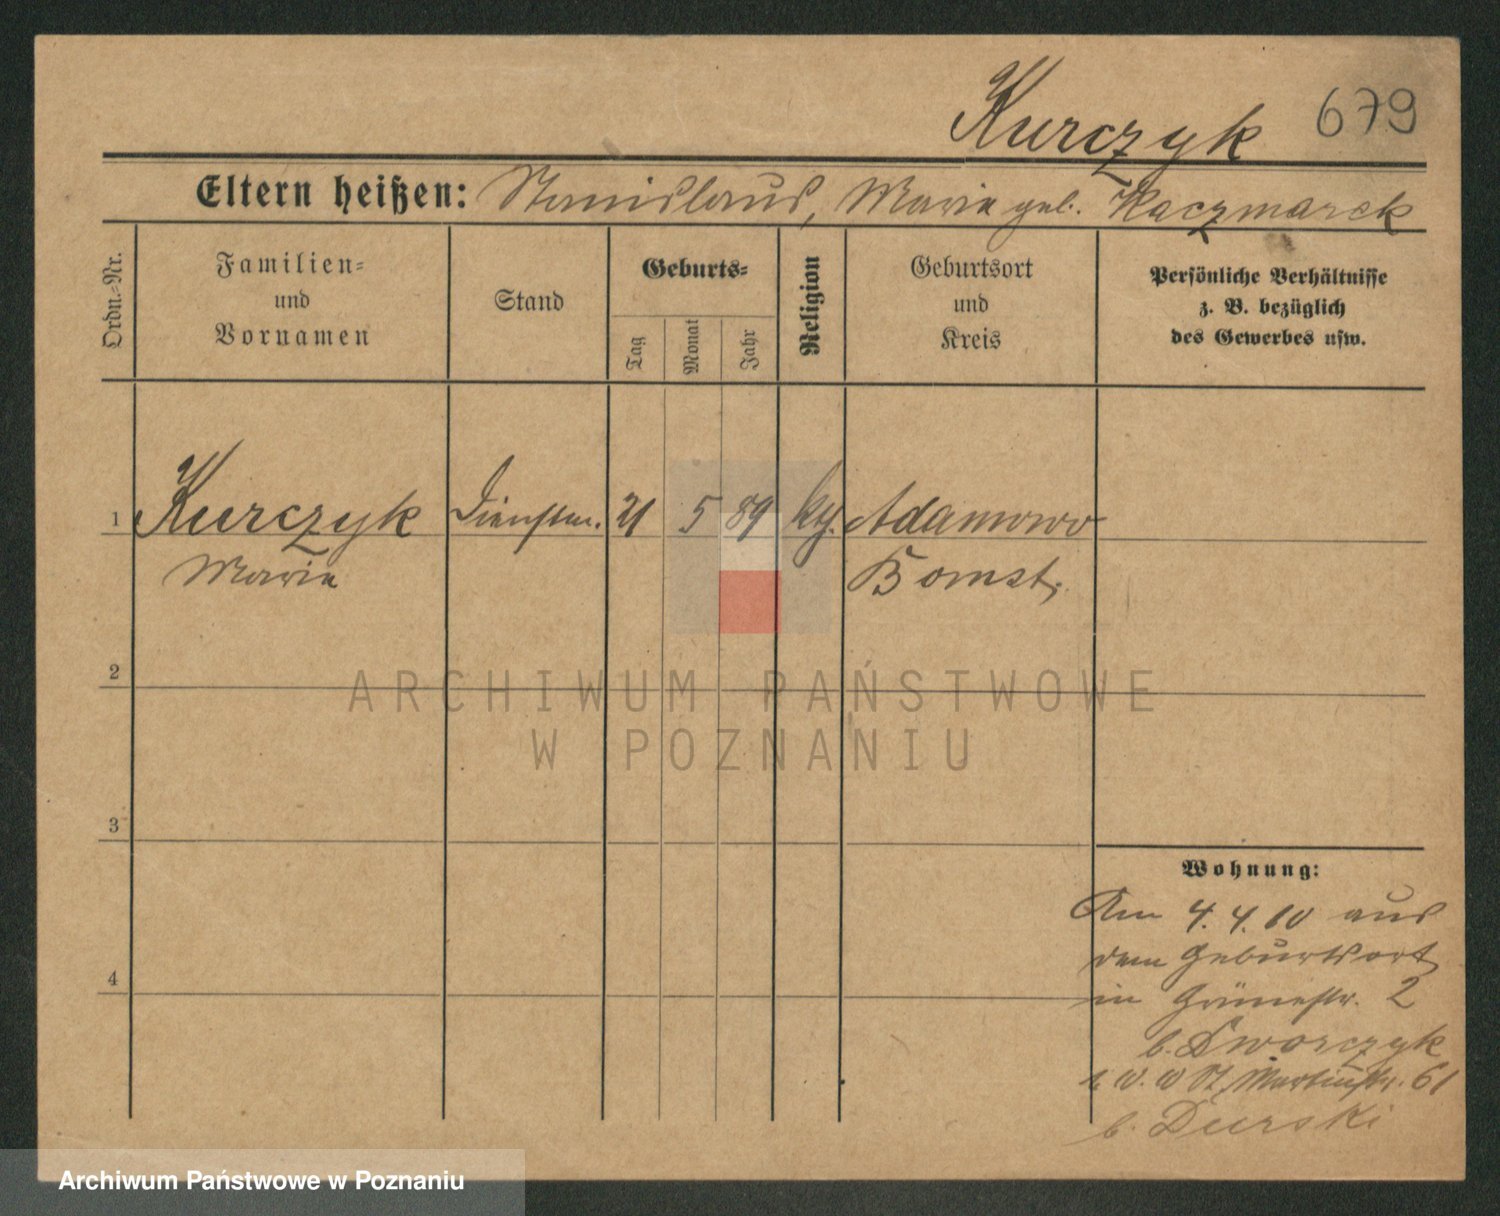 Kurczyk 679
Eltern heißen: Stanislaus, Marie geb. Kaczmarek
Ordn.=Nr.
Familien=
und
Vornamen
Stand
Geburts=
Tag
Monat
Jahr
Religion
Geburtsort
und
Kreis
Persönliche Verhältnisse
z. B. bezüglich
des Gewerbes usw.
1 Kurczyk Dienstm. 21 5 89 kth. Adamowo
Marie Bomst
2
3
4
Wohnung:
Am 4.4.10 aus
dem Geburtsort
in Grünestr. 2
b. Dworczyk
St. Martinstr. 61
b. Durski
ARCHIWUM PAŃSTWOWE
W POZNANIU
Archiwum Państwowe w Poznaniu